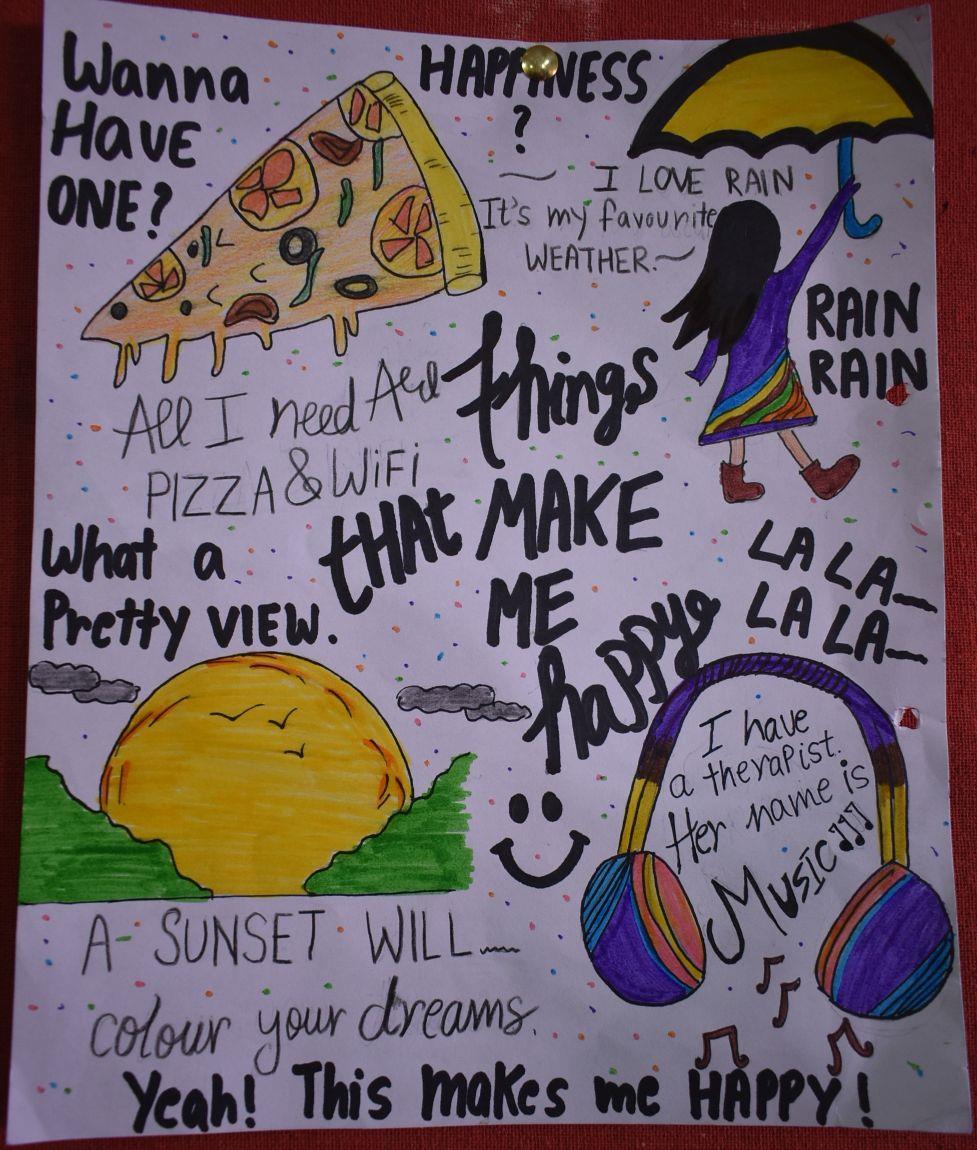 Wanna
Have
ONE?
HAPPINESS
?
~ I LOVE RAIN
It's my favourite
WEATHER.~
RAIN
RAIN
All I need Are
PIZZA & WiFi
things
tHAt MAKE
ME
happy
What a
Pretty VIEW.
LA LA
LA LA
I have
a therapist.
Her name is
Music
A SUNSET WILL
colour your dreams.
Yeah! This makes me HAPPY!